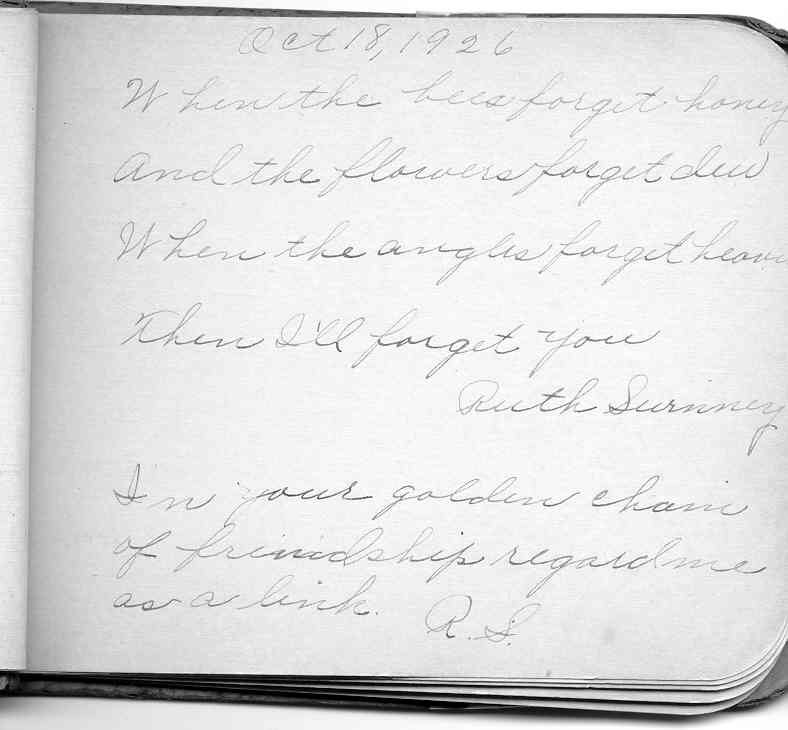 Oct 18, 1926
When the bees forget honey
And the flowers forget dew
When the angles forget heav
Then I'll forget you
Ruth
In your golden chain
of friendship regard me
as a link. R.S.